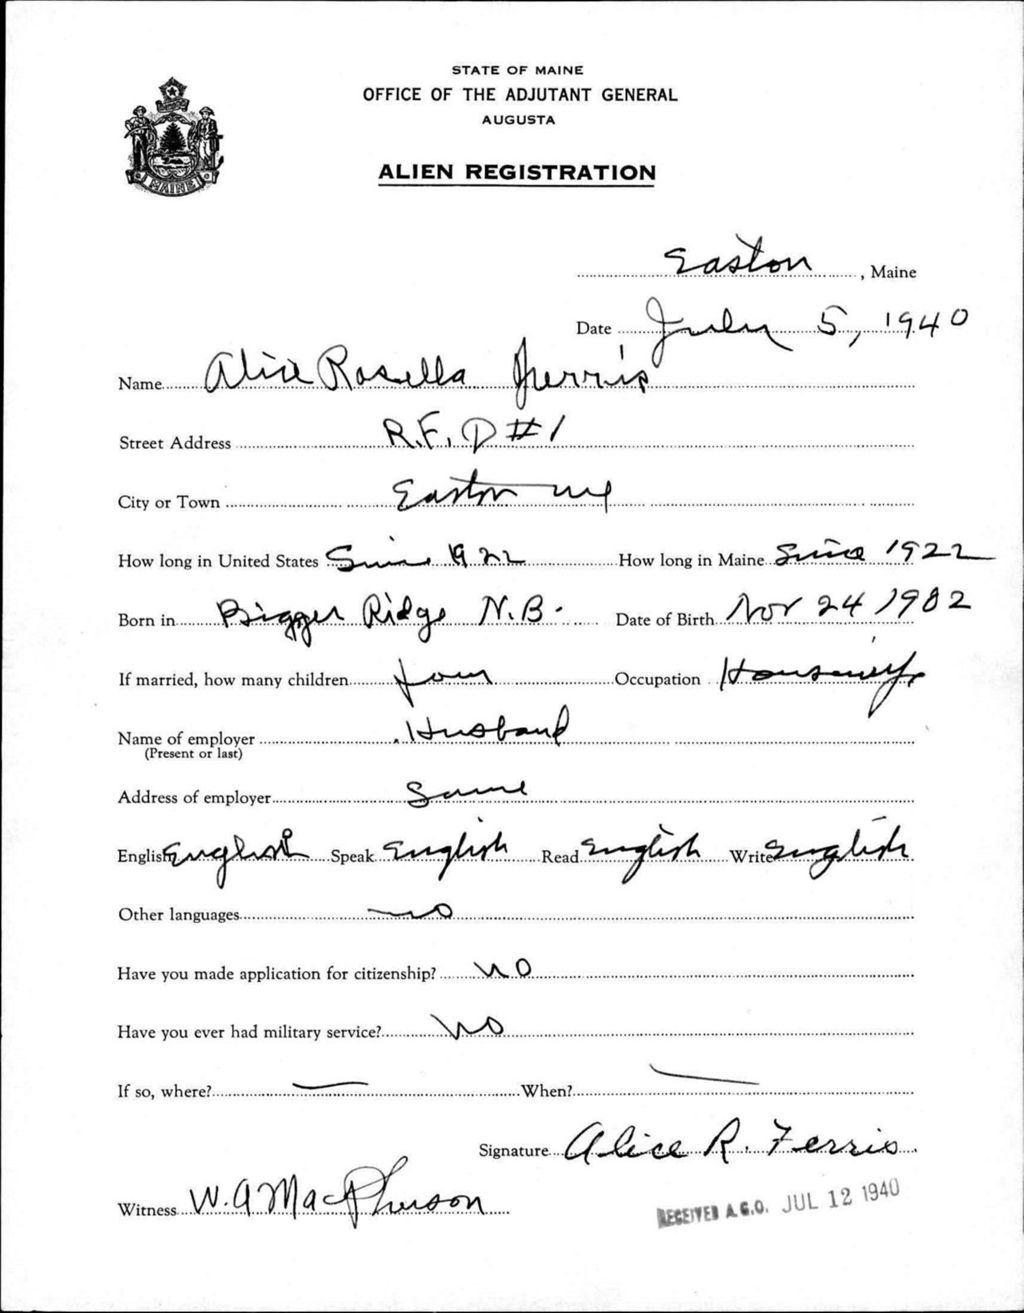 STATE OF MAINE
OFFICE OF THE ADJUTANT GENERAL
AUGUSTA
ALIEN REGISTRATION
MAINE
Easton, Maine
Date July 5, 1940
Name Alice Rosella Ferris
Street Address R.F.D #1
City or Town Easton Me
How long in United States Since 1922 How long in Maine Since 1922
Born in Bigger Ridge N.B. Date of Birth Nov 24 1902
If married, how many children four Occupation Housewife
Name of employer Husband
(Present or last)
Address of employer Same
English English Speak English Read English Write English
Other languages no
Have you made application for citizenship? no
Have you ever had military service? no
If so, where? — When? —
Signature Alice R. Ferris
Witness W. A MacPherson
RECEIVED A.G.O. JUL 12 1940